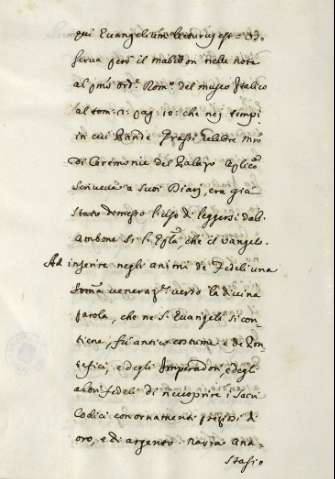 qui Evangelium lecturus est = Os-
serva però il Mabillon nelle note
al p.mo ord. Rom.o del museo Italico
al tom: 2: pag: 10: che nei tempi
in cui Paride Grassi celebre
di Ceremonie del Palazo Aplico
scriveva i suoi Diarj, era già
stato dismesso l'uso di leggersi dall'
ambone sì l'Epla, che il Vangelo.
Ad inserire negli animi de Fedeli una
somma veneraz.e verso la divina
parola, che ne S. Evangelj si con-
tiene, fù antico costume e de Pon-
tefici, e degli Imperadori, e degli
altri fedeli di ricoprire i Sacri
Codici con ornamenti preziosi di
oro, e di argento. Narra Ana-
stasio